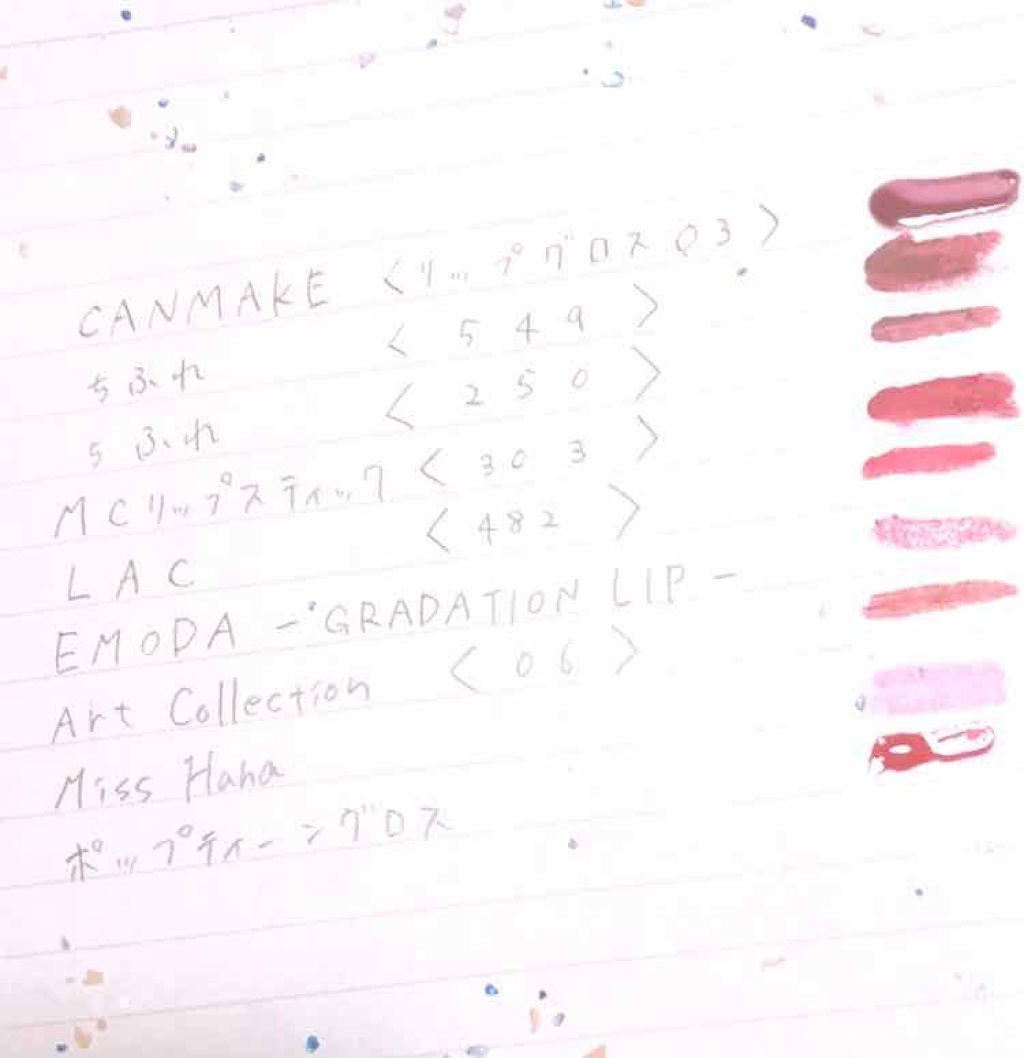 CANMAKE <リップグロス03>
ちふれ <549>
ちふれ <250>
MCリップスティック <303>
LAC <482>
EMODA -GRADATION LIP-
Art Collection <06>
Miss Hana
ポップティーングロス